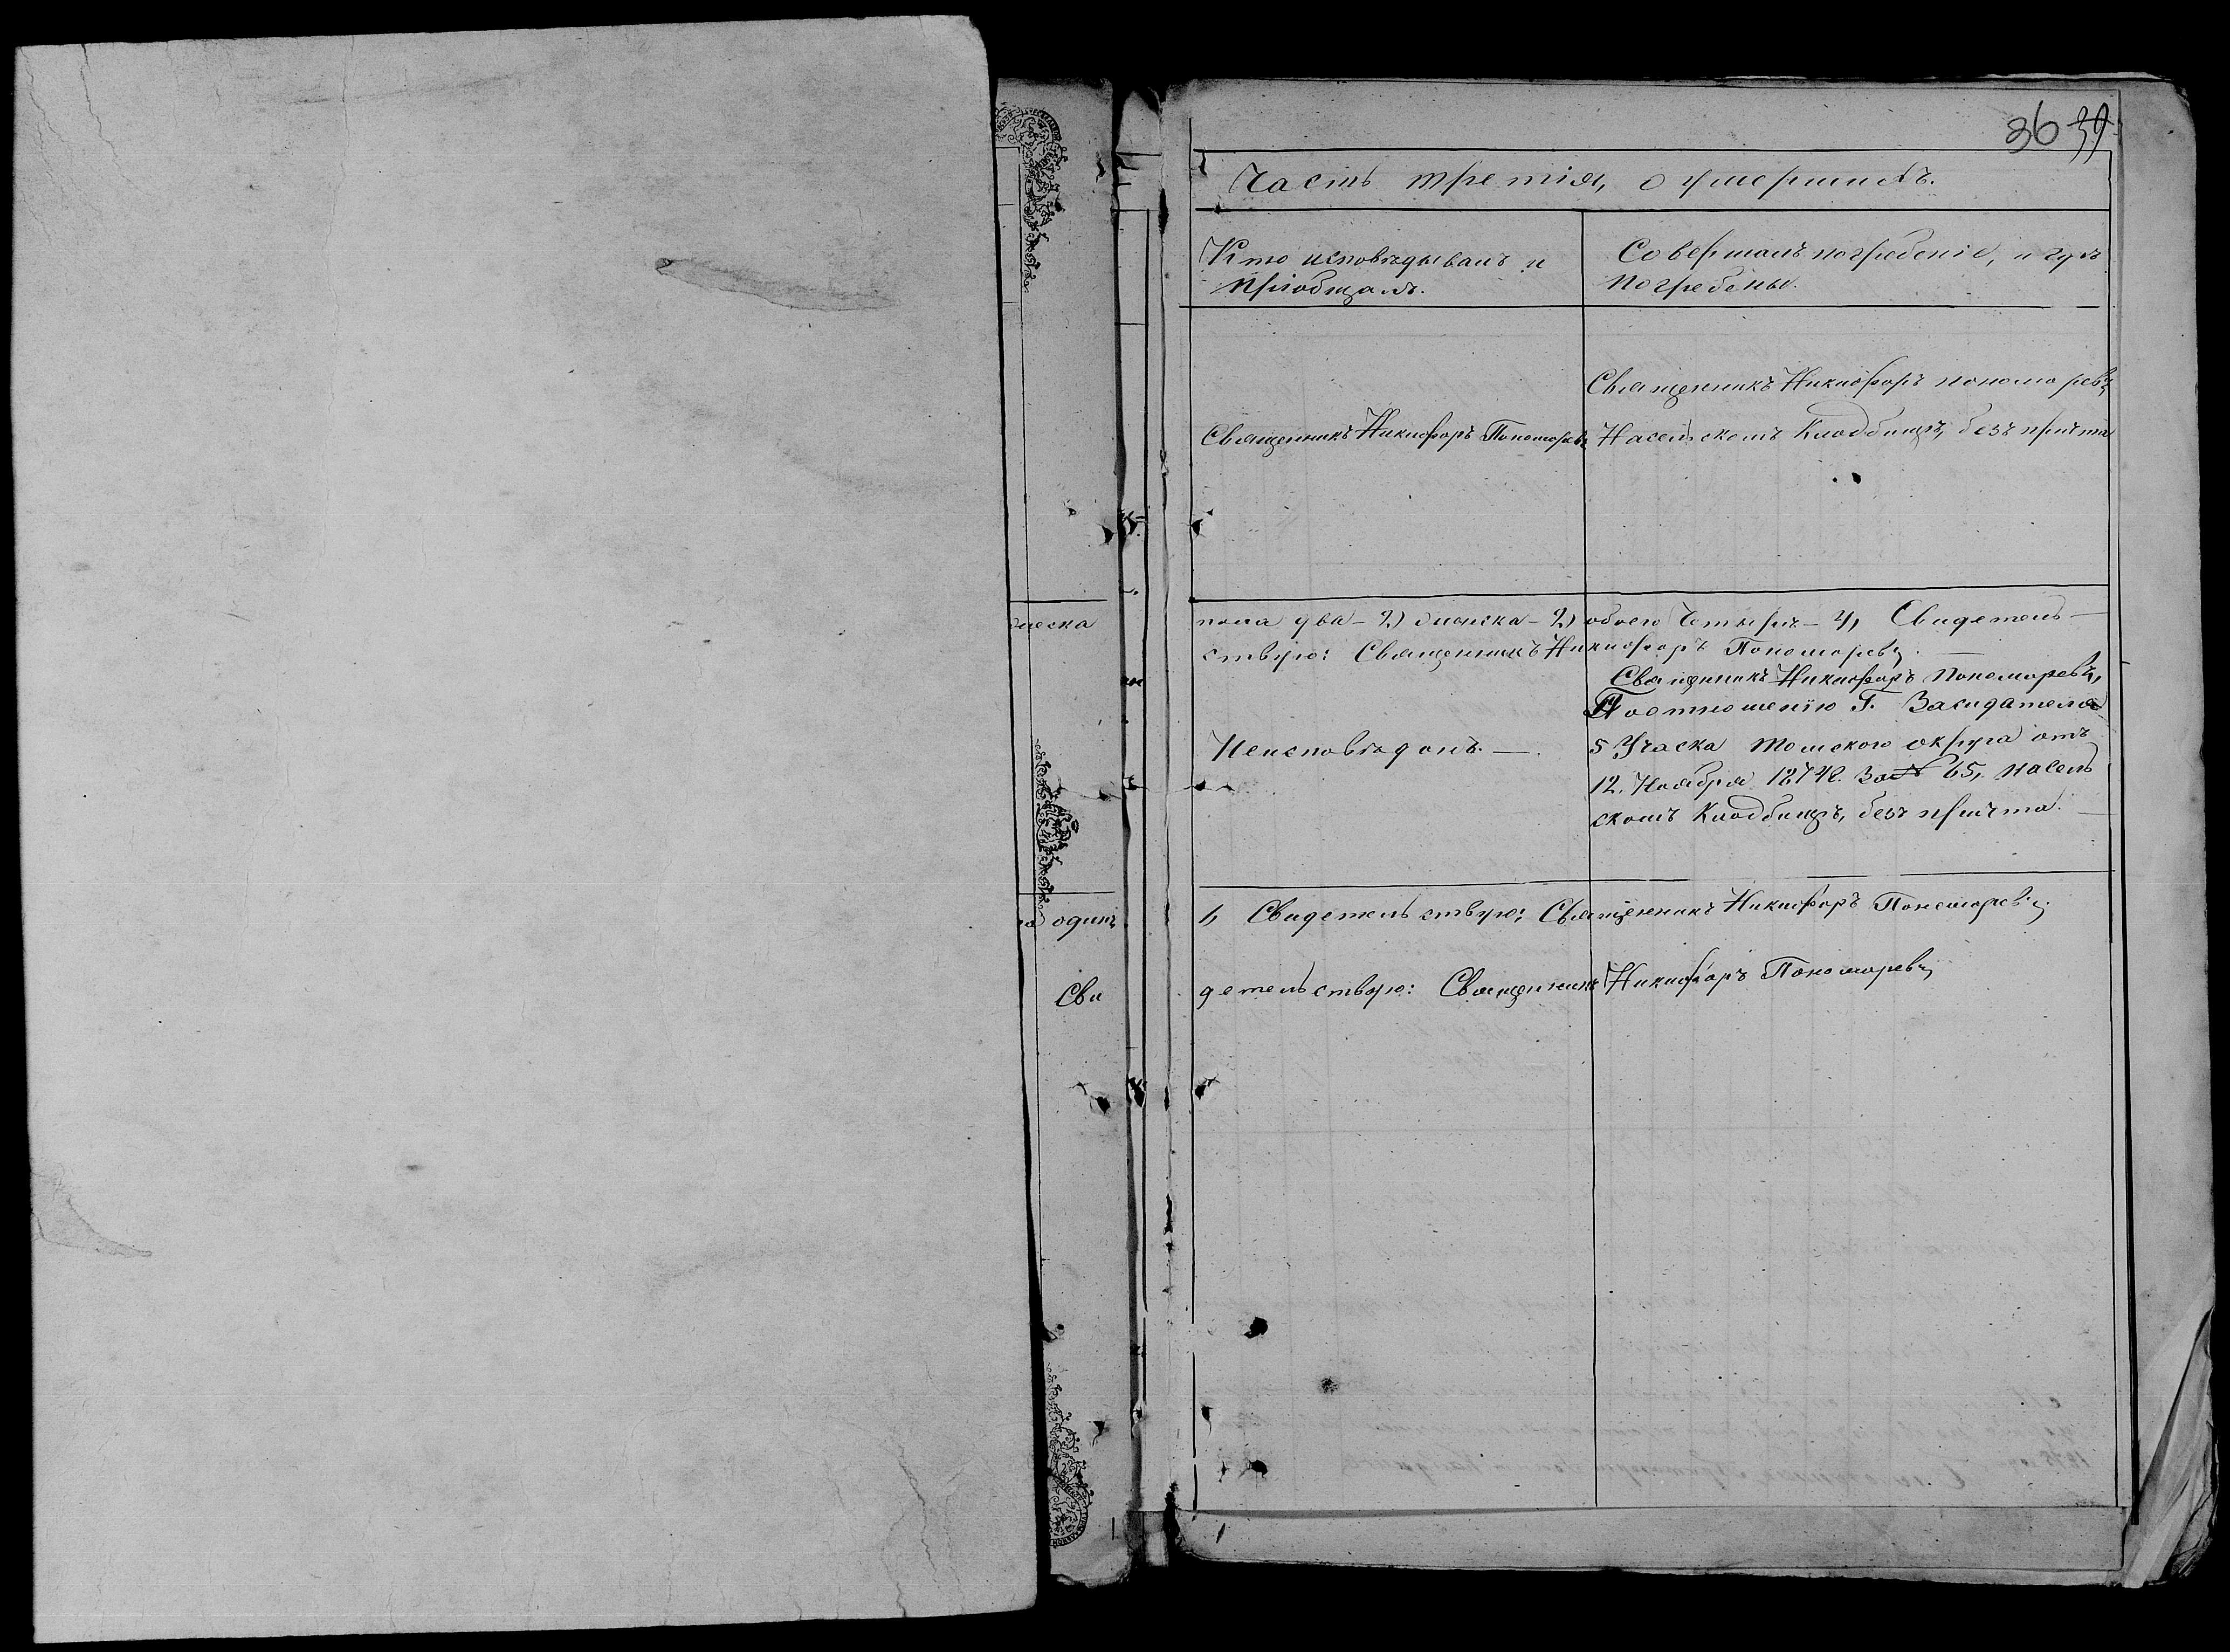 36 39
Часть третія, о умершихъ.
Кто исповѣдывалъ и
пріобщалъ.
Совершалъ погребеніе, и гдѣ
погребены.
Священникъ Никифоръ Пономаревъ,
Священникъ Никифоръ пономаревъ,
Насельскомъ Кладбищѣ, безъ причта
женска
пола два - 2) женска - 2) обоего Четыре - 4, Свидетель
ствую: Священникъ Никифоръ Пономаревъ
Неисповѣданъ. —
Священникъ Никифоръ Пономаревъ,
Поотношенію Г. Засидателя
5 Участка Томскаго округа отъ
12. Ноября 1874г. За № 65, насель
скомъ Кладбищѣ, безъ причта.
одинъ
1, Свидетельствую: Священникъ Никифоръ Пономаревъ
Сви
детельствую: Священникъ Никифоръ Пономаревъ